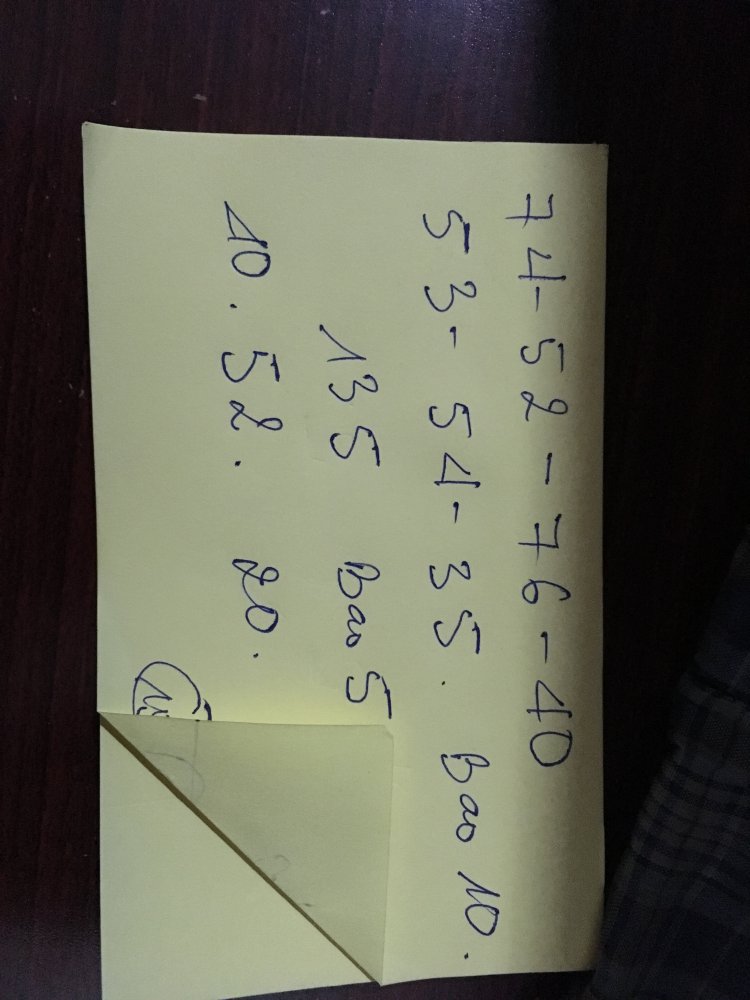 74-52-76-40
53-54-35. Bao 10.
135 Bao 5
10. 52. 20.